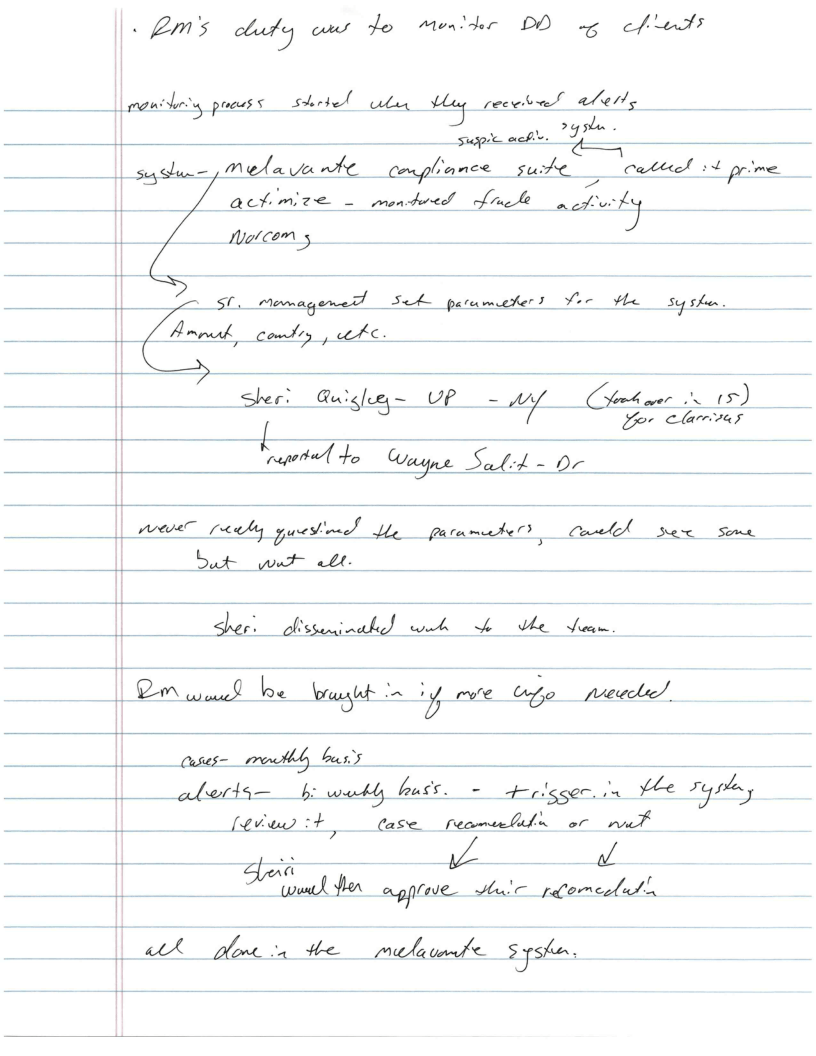 · RM's duty was to monitor DD of clients
monitoring process started when they received alerts
suspic activ. system.
system -, mielavante compliance suite, called it prime
actimize - monitored trade activity
Norcom
sr. management set parameters for the system.
Amount, country, etc.
Sheri Quigley - VP - NY (took over in 15)
for
reported to Wayne Salit - Dr
Never really questioned the parameters, could see some
but not all.
Sheri disseminated work to the team.
RM would be brought in if more info needed.
cases - monthly basis
alerts - bi weekly basis. - trigger in the system,
review it, case recomendation or not
Sheri
would then approve their recomendation
all done in the mielavante system.